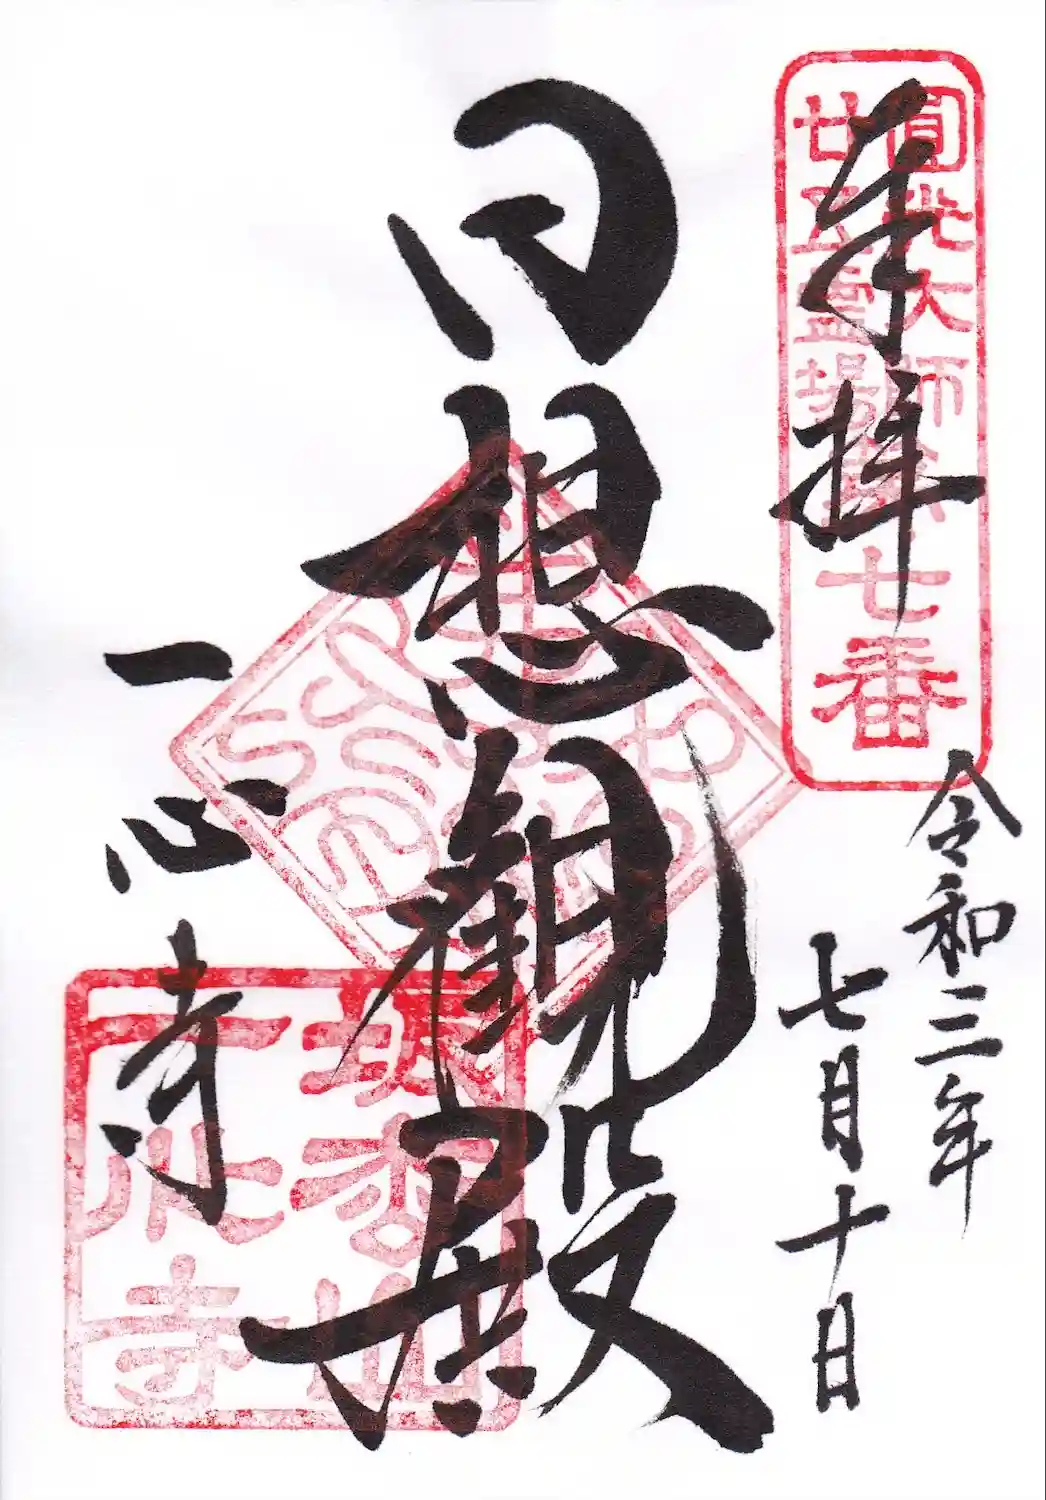 奉拝
圓光大師
廿五霊場第七番
令和三年
七月十日
日想観殿
一心寺
坂松山
一心寺